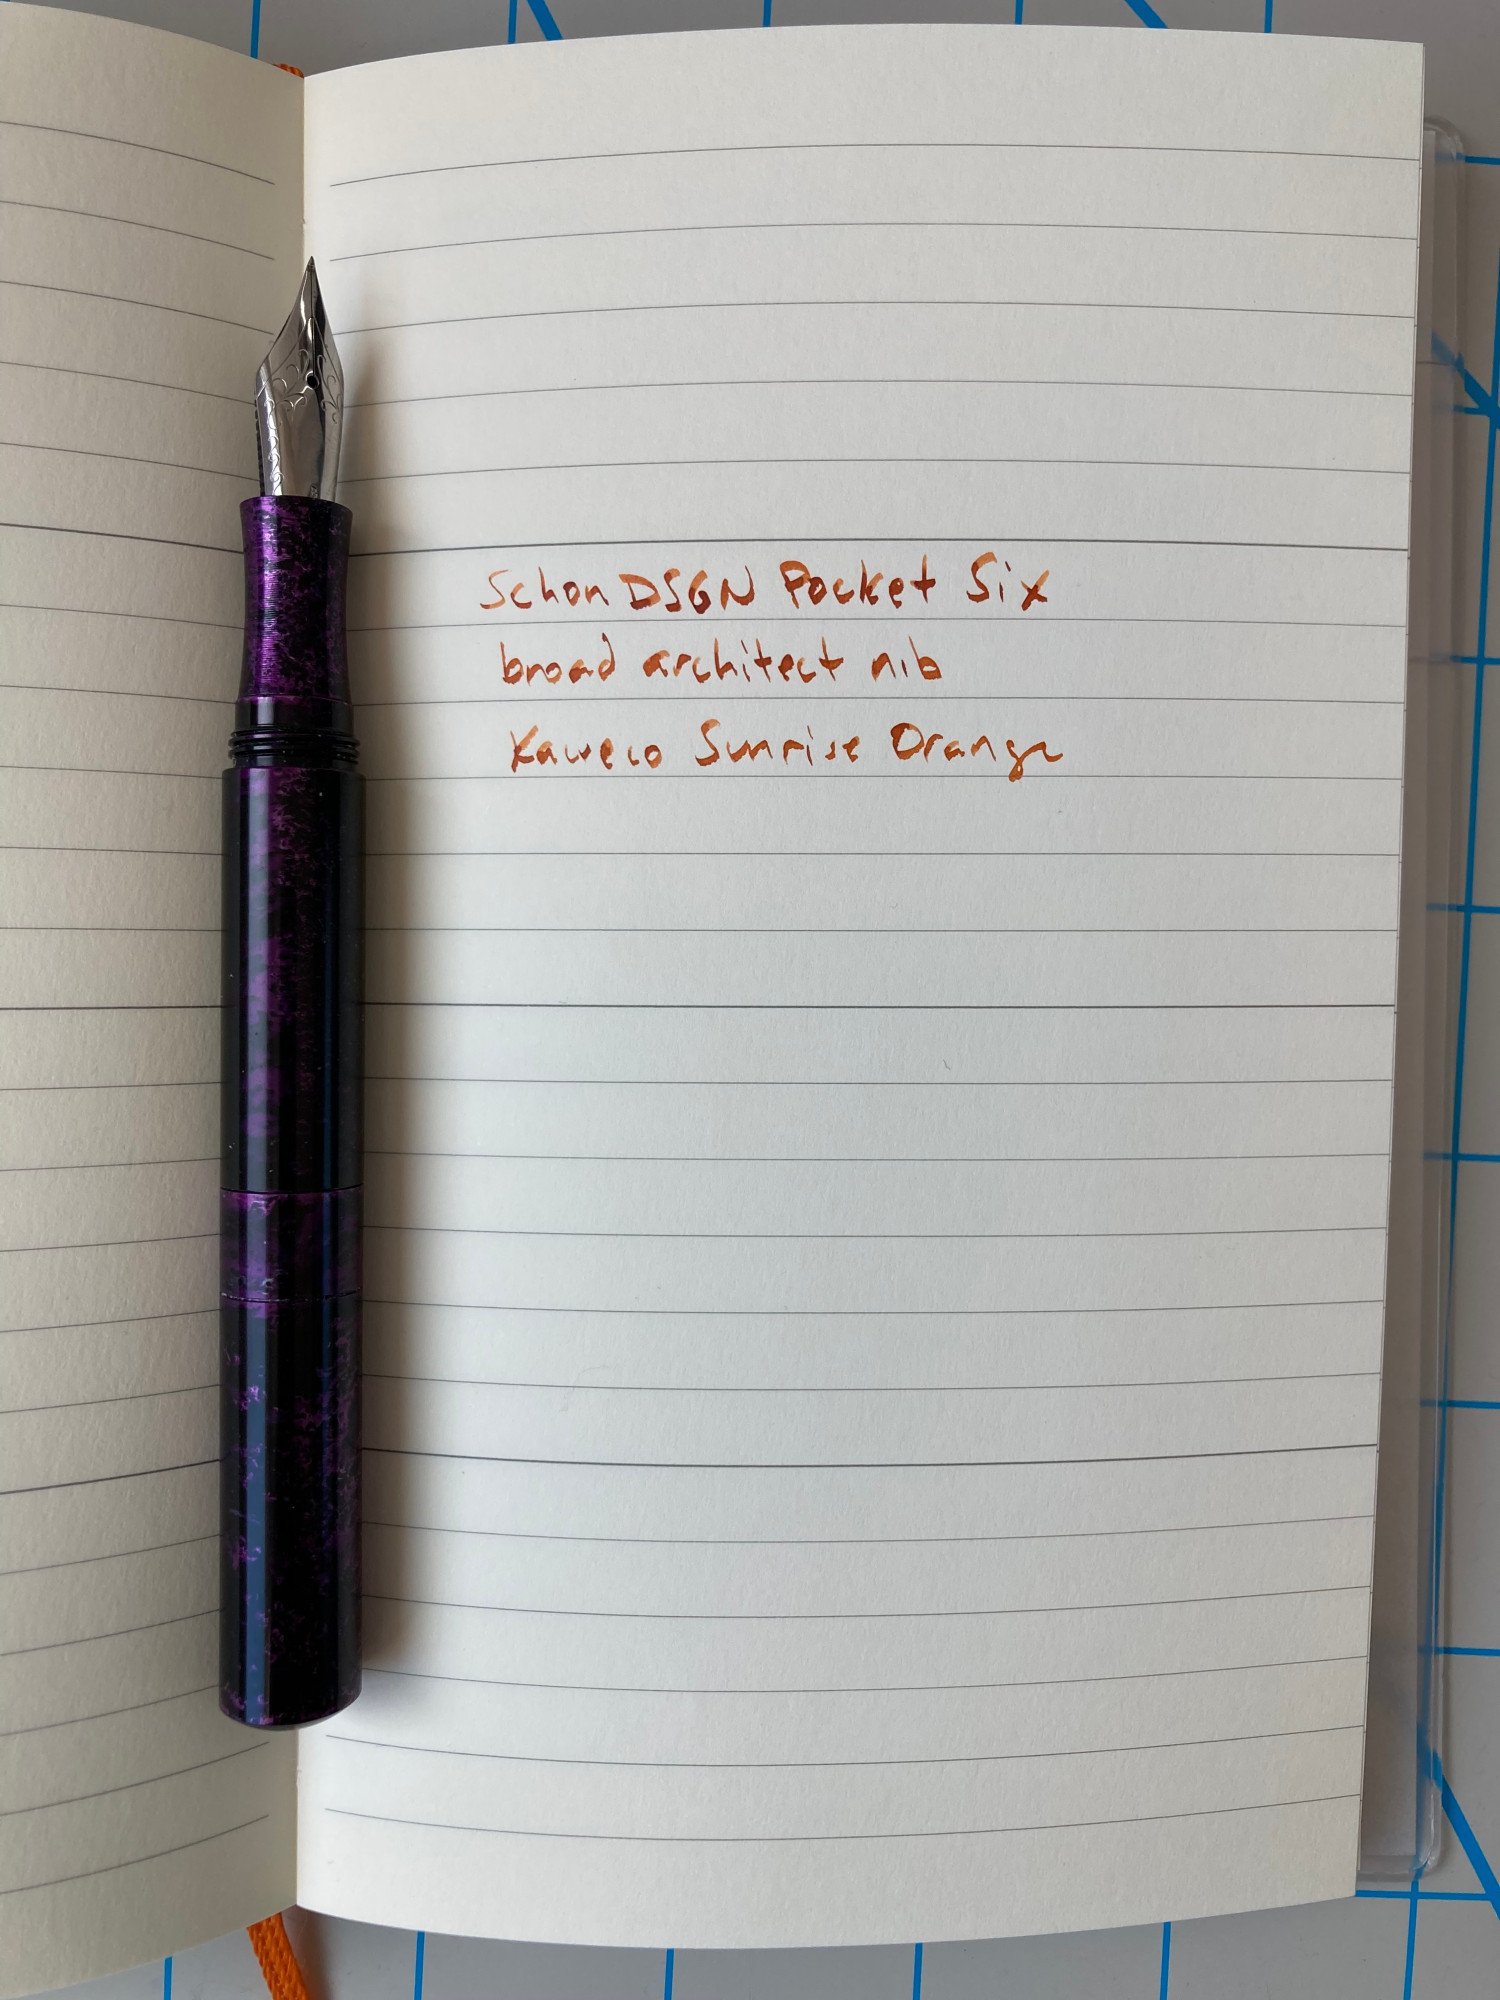 Schon DSGN Pocket Six
broad architect nib
Kaweco Sunrise Orange